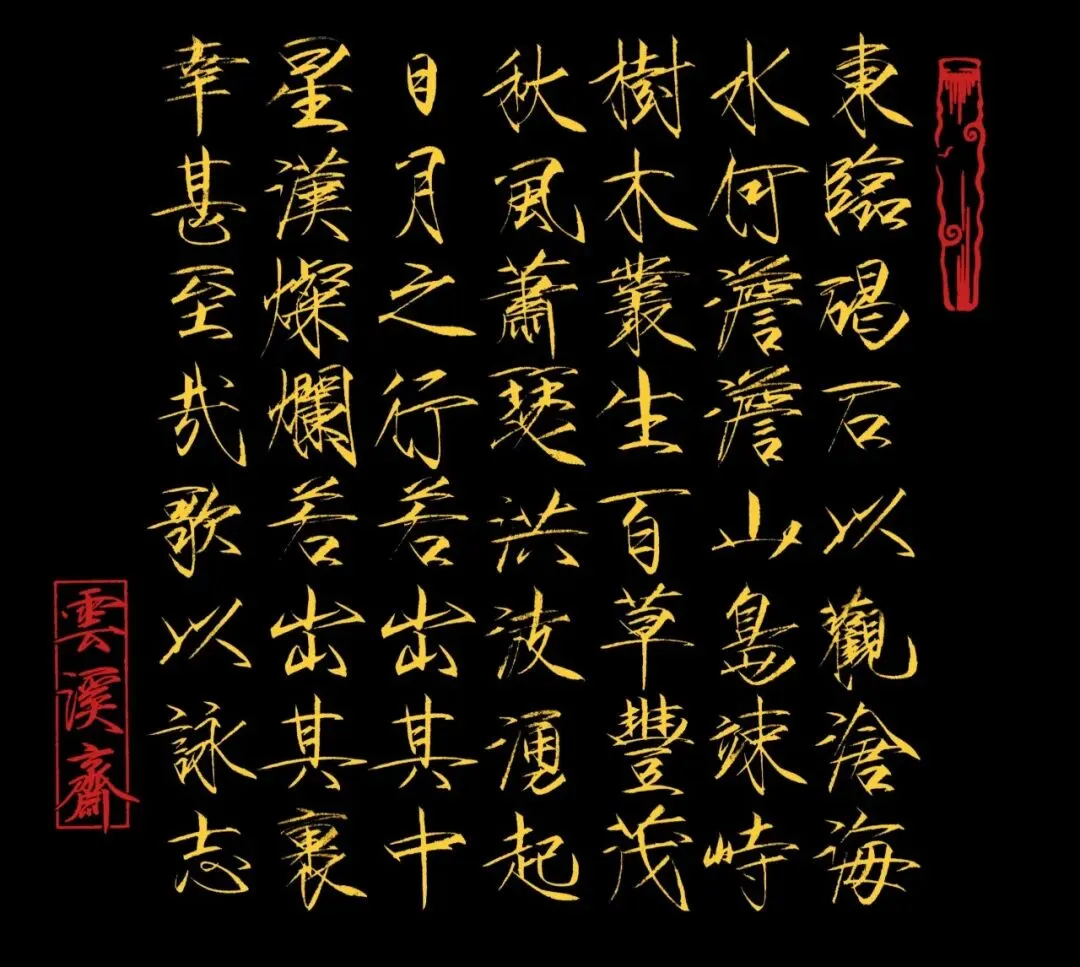 東臨碣石以觀滄海
水何澹澹山島竦峙
樹木叢生百草豐茂
秋風蕭瑟洪波湧起
日月之行若出其中
星漢燦爛若出其裏
幸甚至哉歌以詠志
雲溪齋